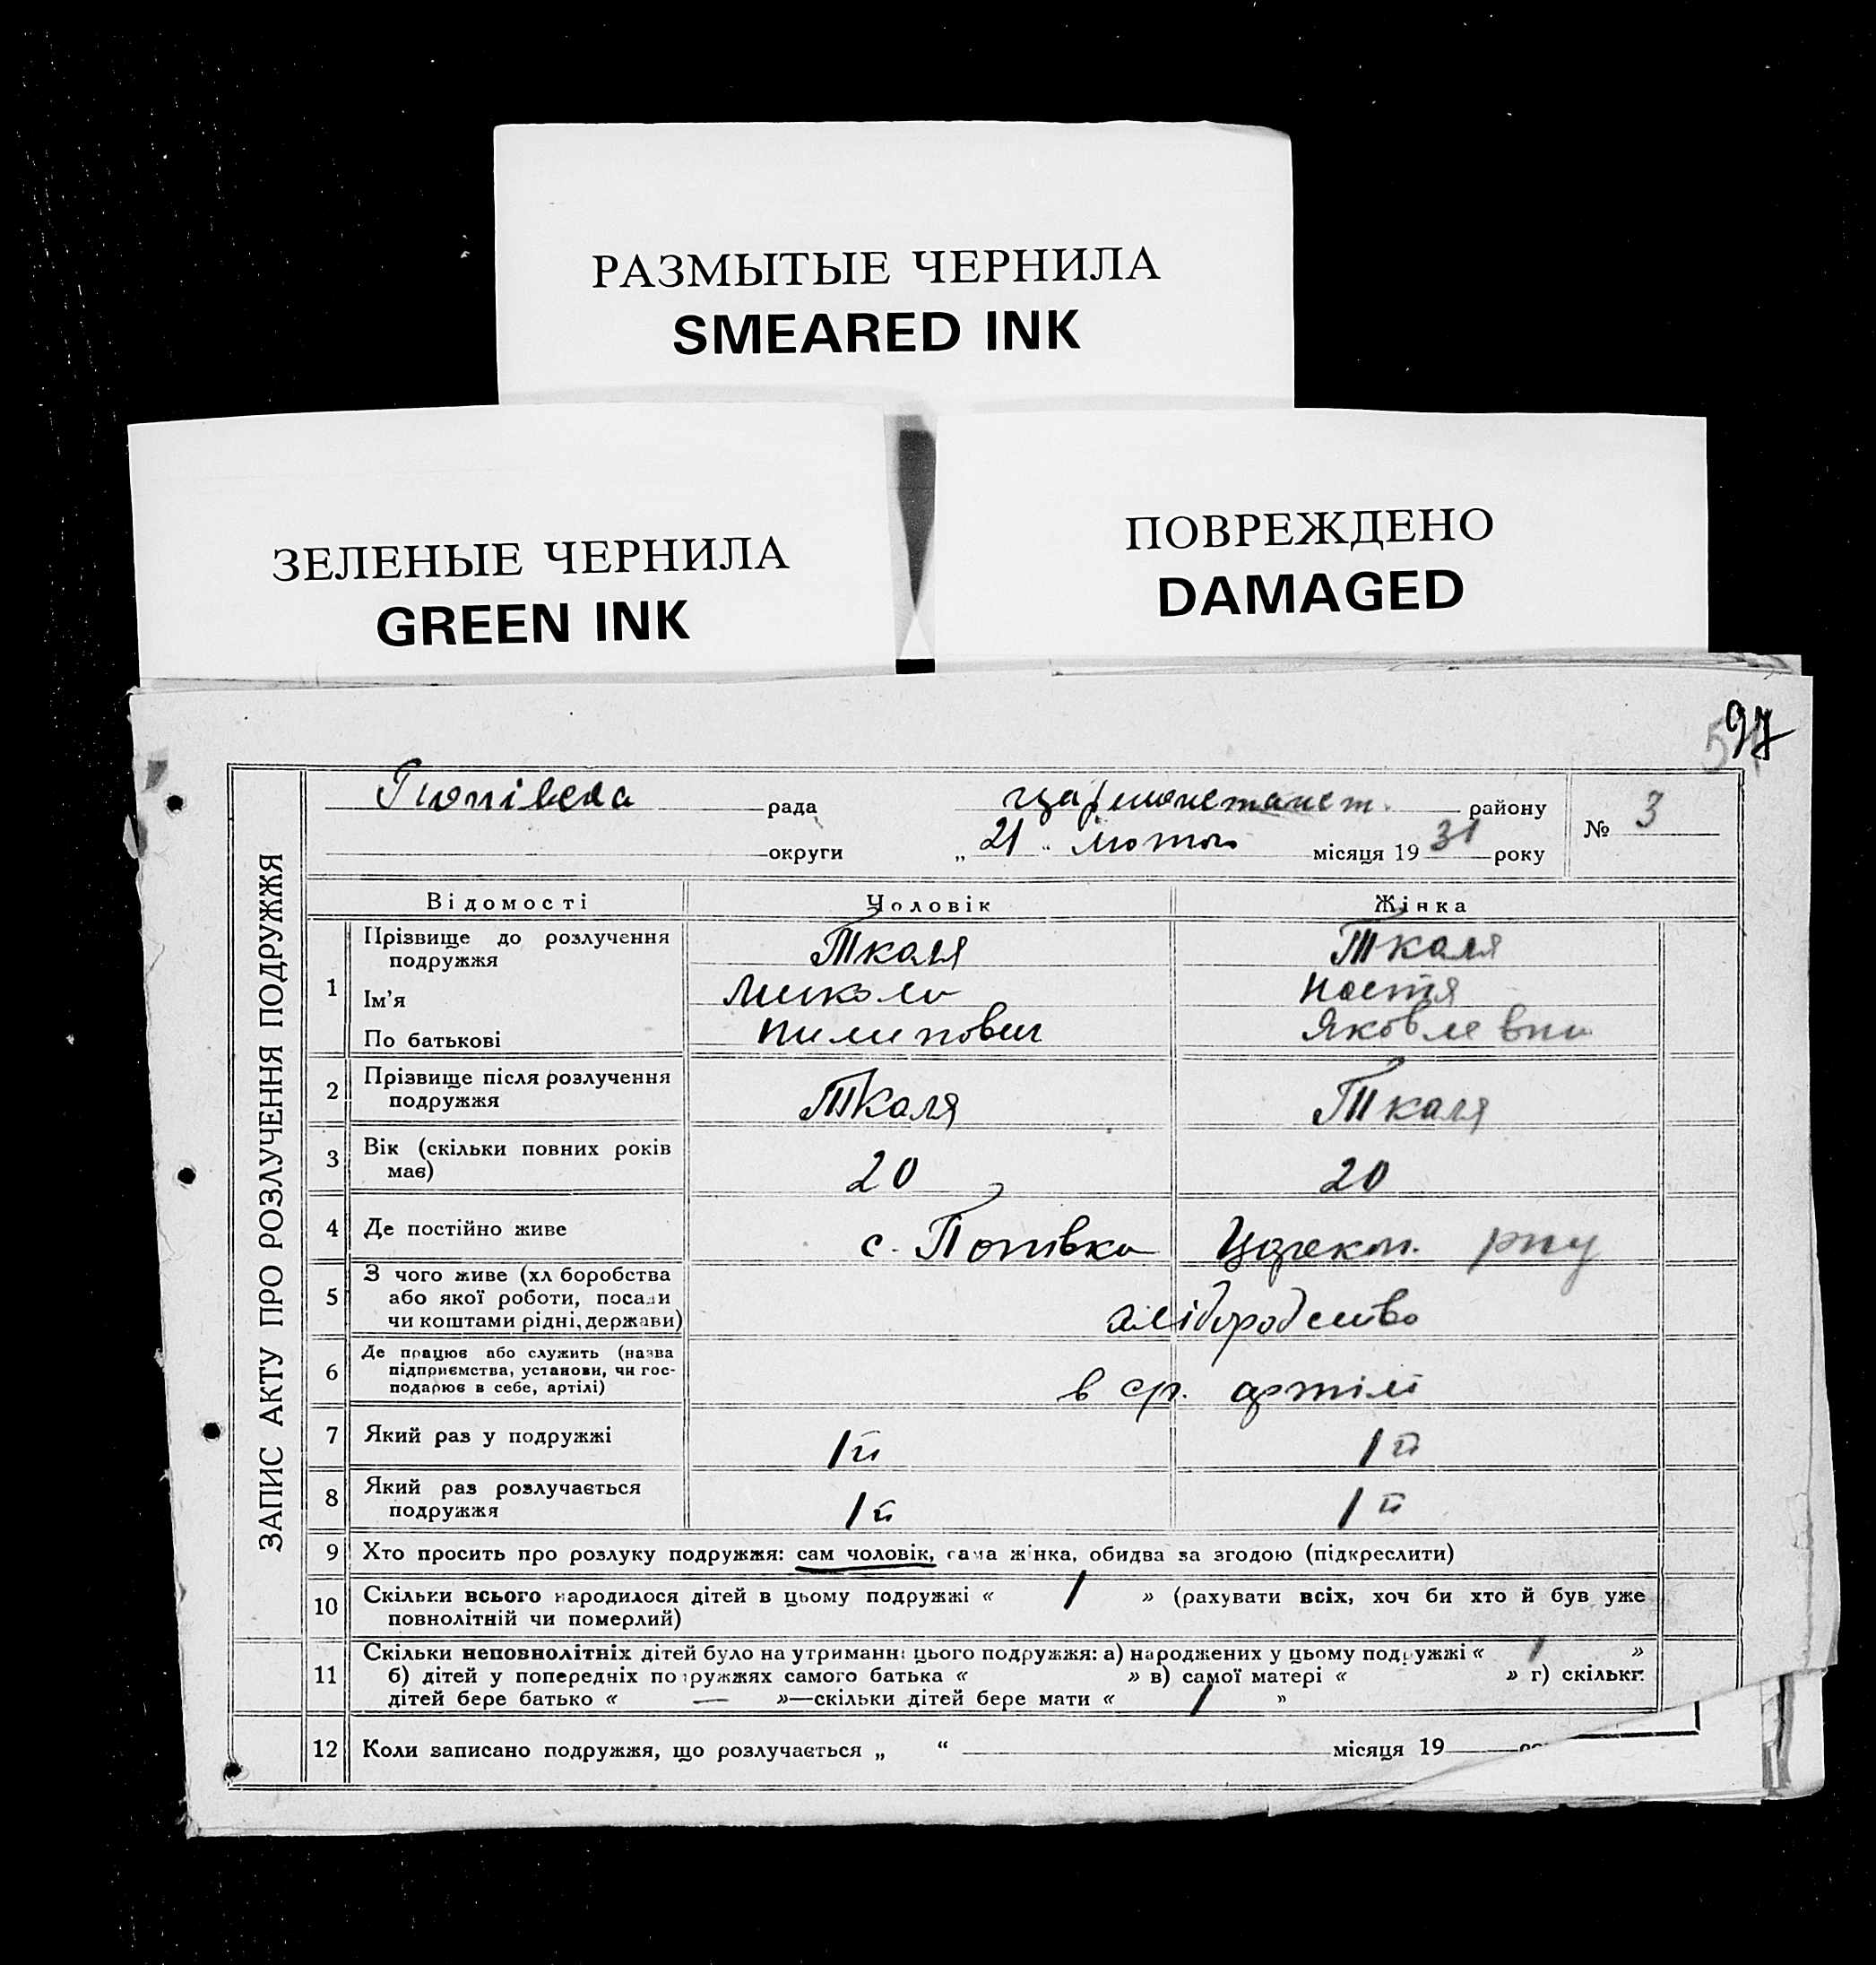 РАЗМЫТЫЕ ЧЕРНИЛА
SMEARED INK
ЗЕЛЕНЫЕ ЧЕРНИЛА
GREEN INK
ПОВРЕЖДЕНО
DAMAGED
97
ЗАПИС АКТУ ПРО РОЗЛУЧЕННЯ ПОДРУЖЖЯ
рада району № 3
округи „ 21 “ лютого місяця 19 31 року
Відомості Чоловік Жінка
1 Прізвище до розлучення подружжя Ткаля Ткаля
Ім'я Микола Настя
По батькові Пилипович Яковлевна
2 Прізвище після розлучення
подружжя Ткаля Ткаля
3 Вік (скільки повних років
має) 20 20
4 Де постійно живе с. Попівка рну
5 З чого живе (хліборобства
або якої роботи, посади
чи коштами рідні, держави) хліборобство
6 Де працює або служить (назва
підприємства, установи, чи гос-
подарює в себе, артілі) в артілі
7 Який раз у подружжі 1й 1й
8 Який раз розлучається
подружжя 1й 1й
9 Хто просить про розлуку подружжя: сам чоловік, сама жінка, обидва за згодою (підкреслити)
10 Скільки всього народилося дітей в цьому подружжі « 1 » (рахувати всіх, хоч би хто й був уже
повнолітній чи померлий)
11 Скільки неповнолітніх дітей було на утриманні цього подружжя: а) народжених у цьому подружжі « 1 »
б) дітей у попередніх подружжях самого батька « » в) самої матері « » г) скільки
дітей бере батько « — »—скільки дітей бере мати « 1 »
12 Коли записано подружжя, що розлучається „ “ місяця 19